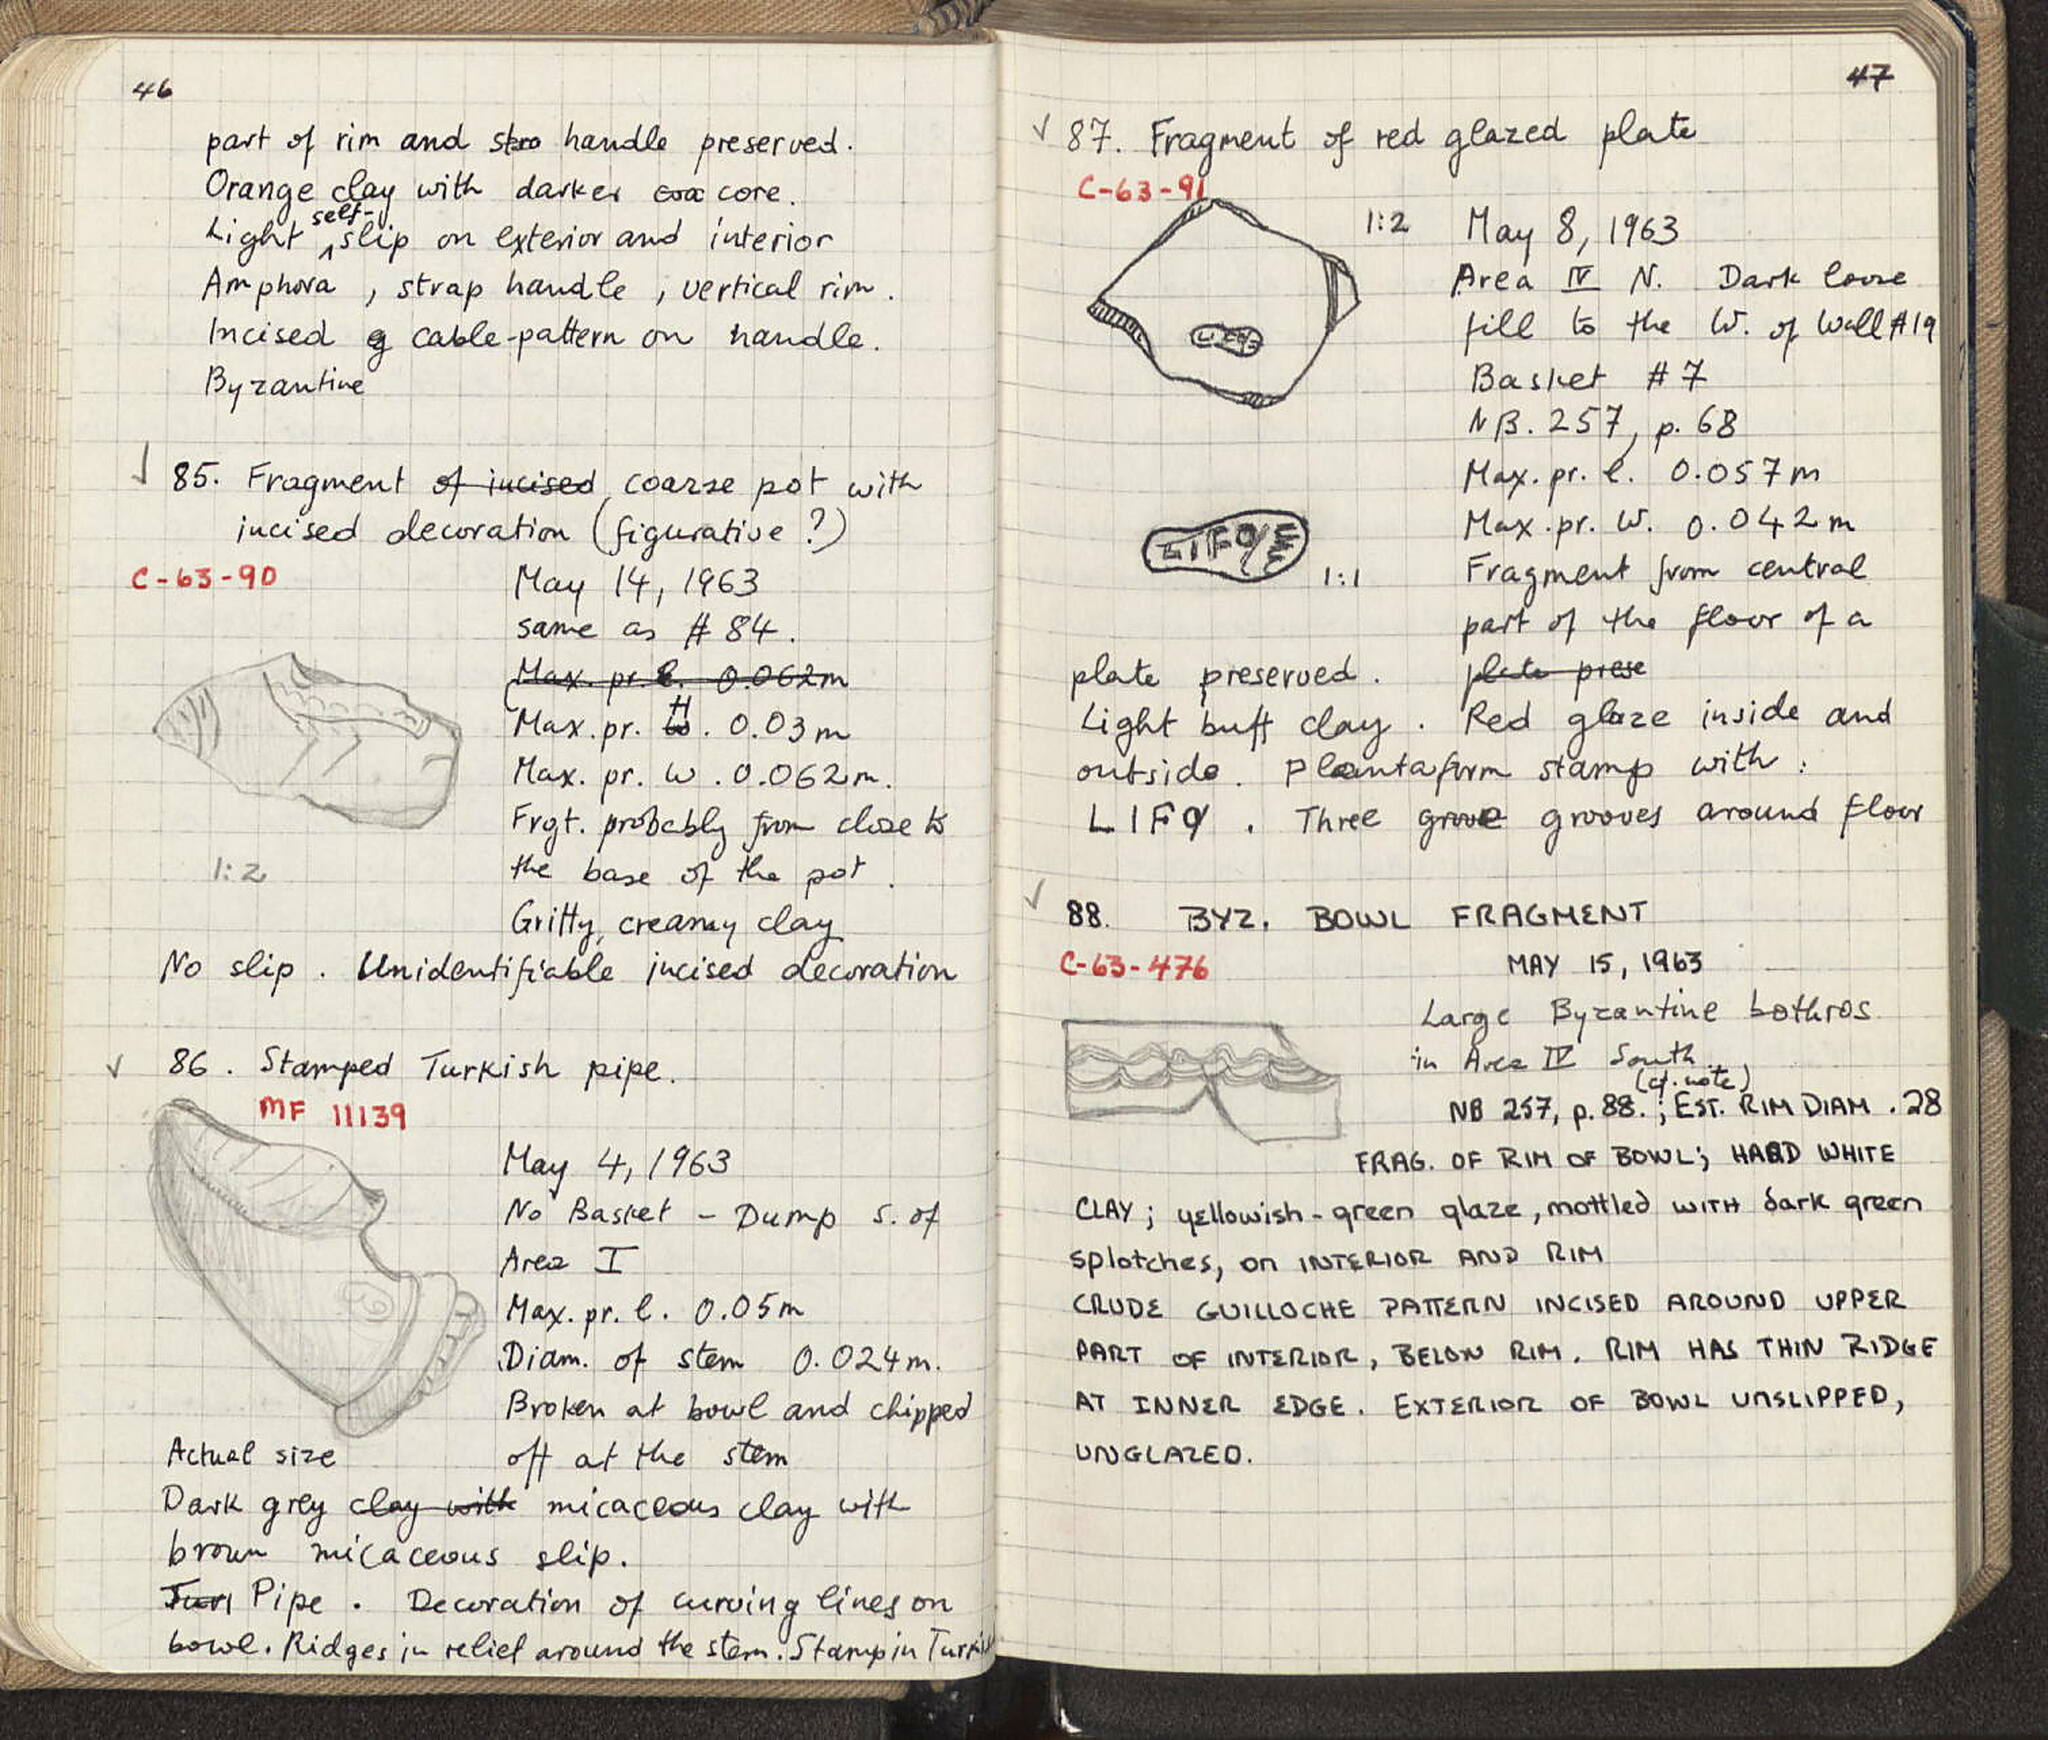 46
part of rim and stro handle preserved.
Orange clay with darker coa core.
Light self-slip on exterior and interior
Amphora, strap handle, vertical rim.
Incised g cable-pattern on handle.
Byzantine
85. Fragment of incised coarse pot with
incised decoration (figurative?)
C-63-90
May 14, 1963
same as # 84.
Max. pr. l. 0.062m
Max. pr. w. H 0.03m
Max. pr. w. 0.062m.
Frgt. probably from close to
the base of the pot.
1:2
Gritty, creamy clay
No slip. Unidentifiable incised decoration
86. Stamped Turkish pipe.
MF 11139
May 4, 1963
No Basket - Dump S. of
Area I
Max. pr. l. 0.05m
Diam. of stem 0.024m.
Broken at bowl and chipped
off at the stem
Actual size
Dark grey clay with micaceous clay with
brown micaceous slip.
Turi Pipe. Decoration of curving lines on
bowl. Ridges in relief around the stem. Stamp in Turkish
47
87. Fragment of red glazed plate
C-63-91
1:2
May 8, 1963
Area IV N. Dark loose
fill to the W. of Wall #19
Basket #7
NB. 257, p. 68
Max. pr. l. 0.057m
Max. pr. W. 0.042m
LIFO
1:1
Fragment from central
part of the floor of a
plate preserved. plate prese
Light buff clay. Red glaze inside and
outside. Plantaform stamp with:
LIFO. Three groove grooves around floor
88. BYZ. BOWL FRAGMENT
C-63-476
MAY 15, 1963
Large Byzantine bothros
in Area IV South
(cf. note)
NB 257, p. 88.; EST. RIM DIAM .28
FRAG. OF RIM OF BOWL; HARD WHITE
CLAY; yellowish-green glaze, mottled WITH dark green
splotches, on INTERIOR AND RIM
CRUDE GUILLOCHE PATTERN INCISED AROUND UPPER
PART OF INTERIOR, BELOW RIM. RIM HAS THIN RIDGE
AT INNER EDGE. EXTERIOR OF BOWL UNSLIPPED,
UNGLAZED.